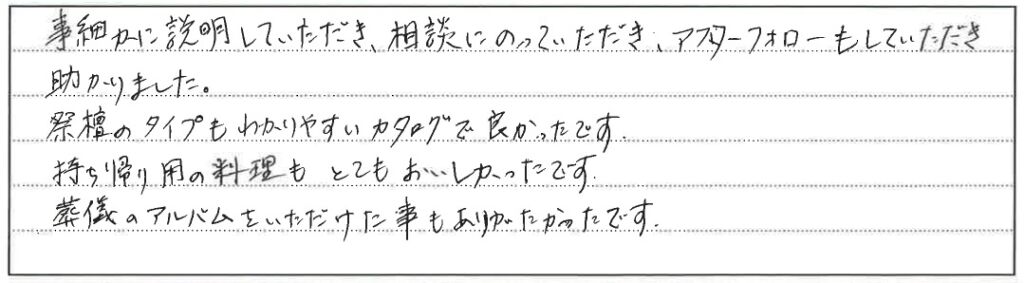 事細かに説明していただき、相談にのっていただき、アフターフォローもしていただき
助かりました。
祭壇のタイプもわかりやすいカタログで良かったです.
持ち帰り用の料理も とてもおいしかったです.
葬儀のアルバムをいただけた事もありがたかったです.